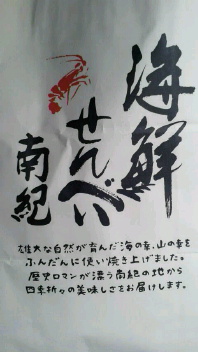 海鮮
せんべい
南紀
雄大な自然が育んだ海の幸、山の幸を
ふんだんに使い焼き上げました。
歴史ロマンが漂う南紀の地から
四季折々の美味しさをお届けします。